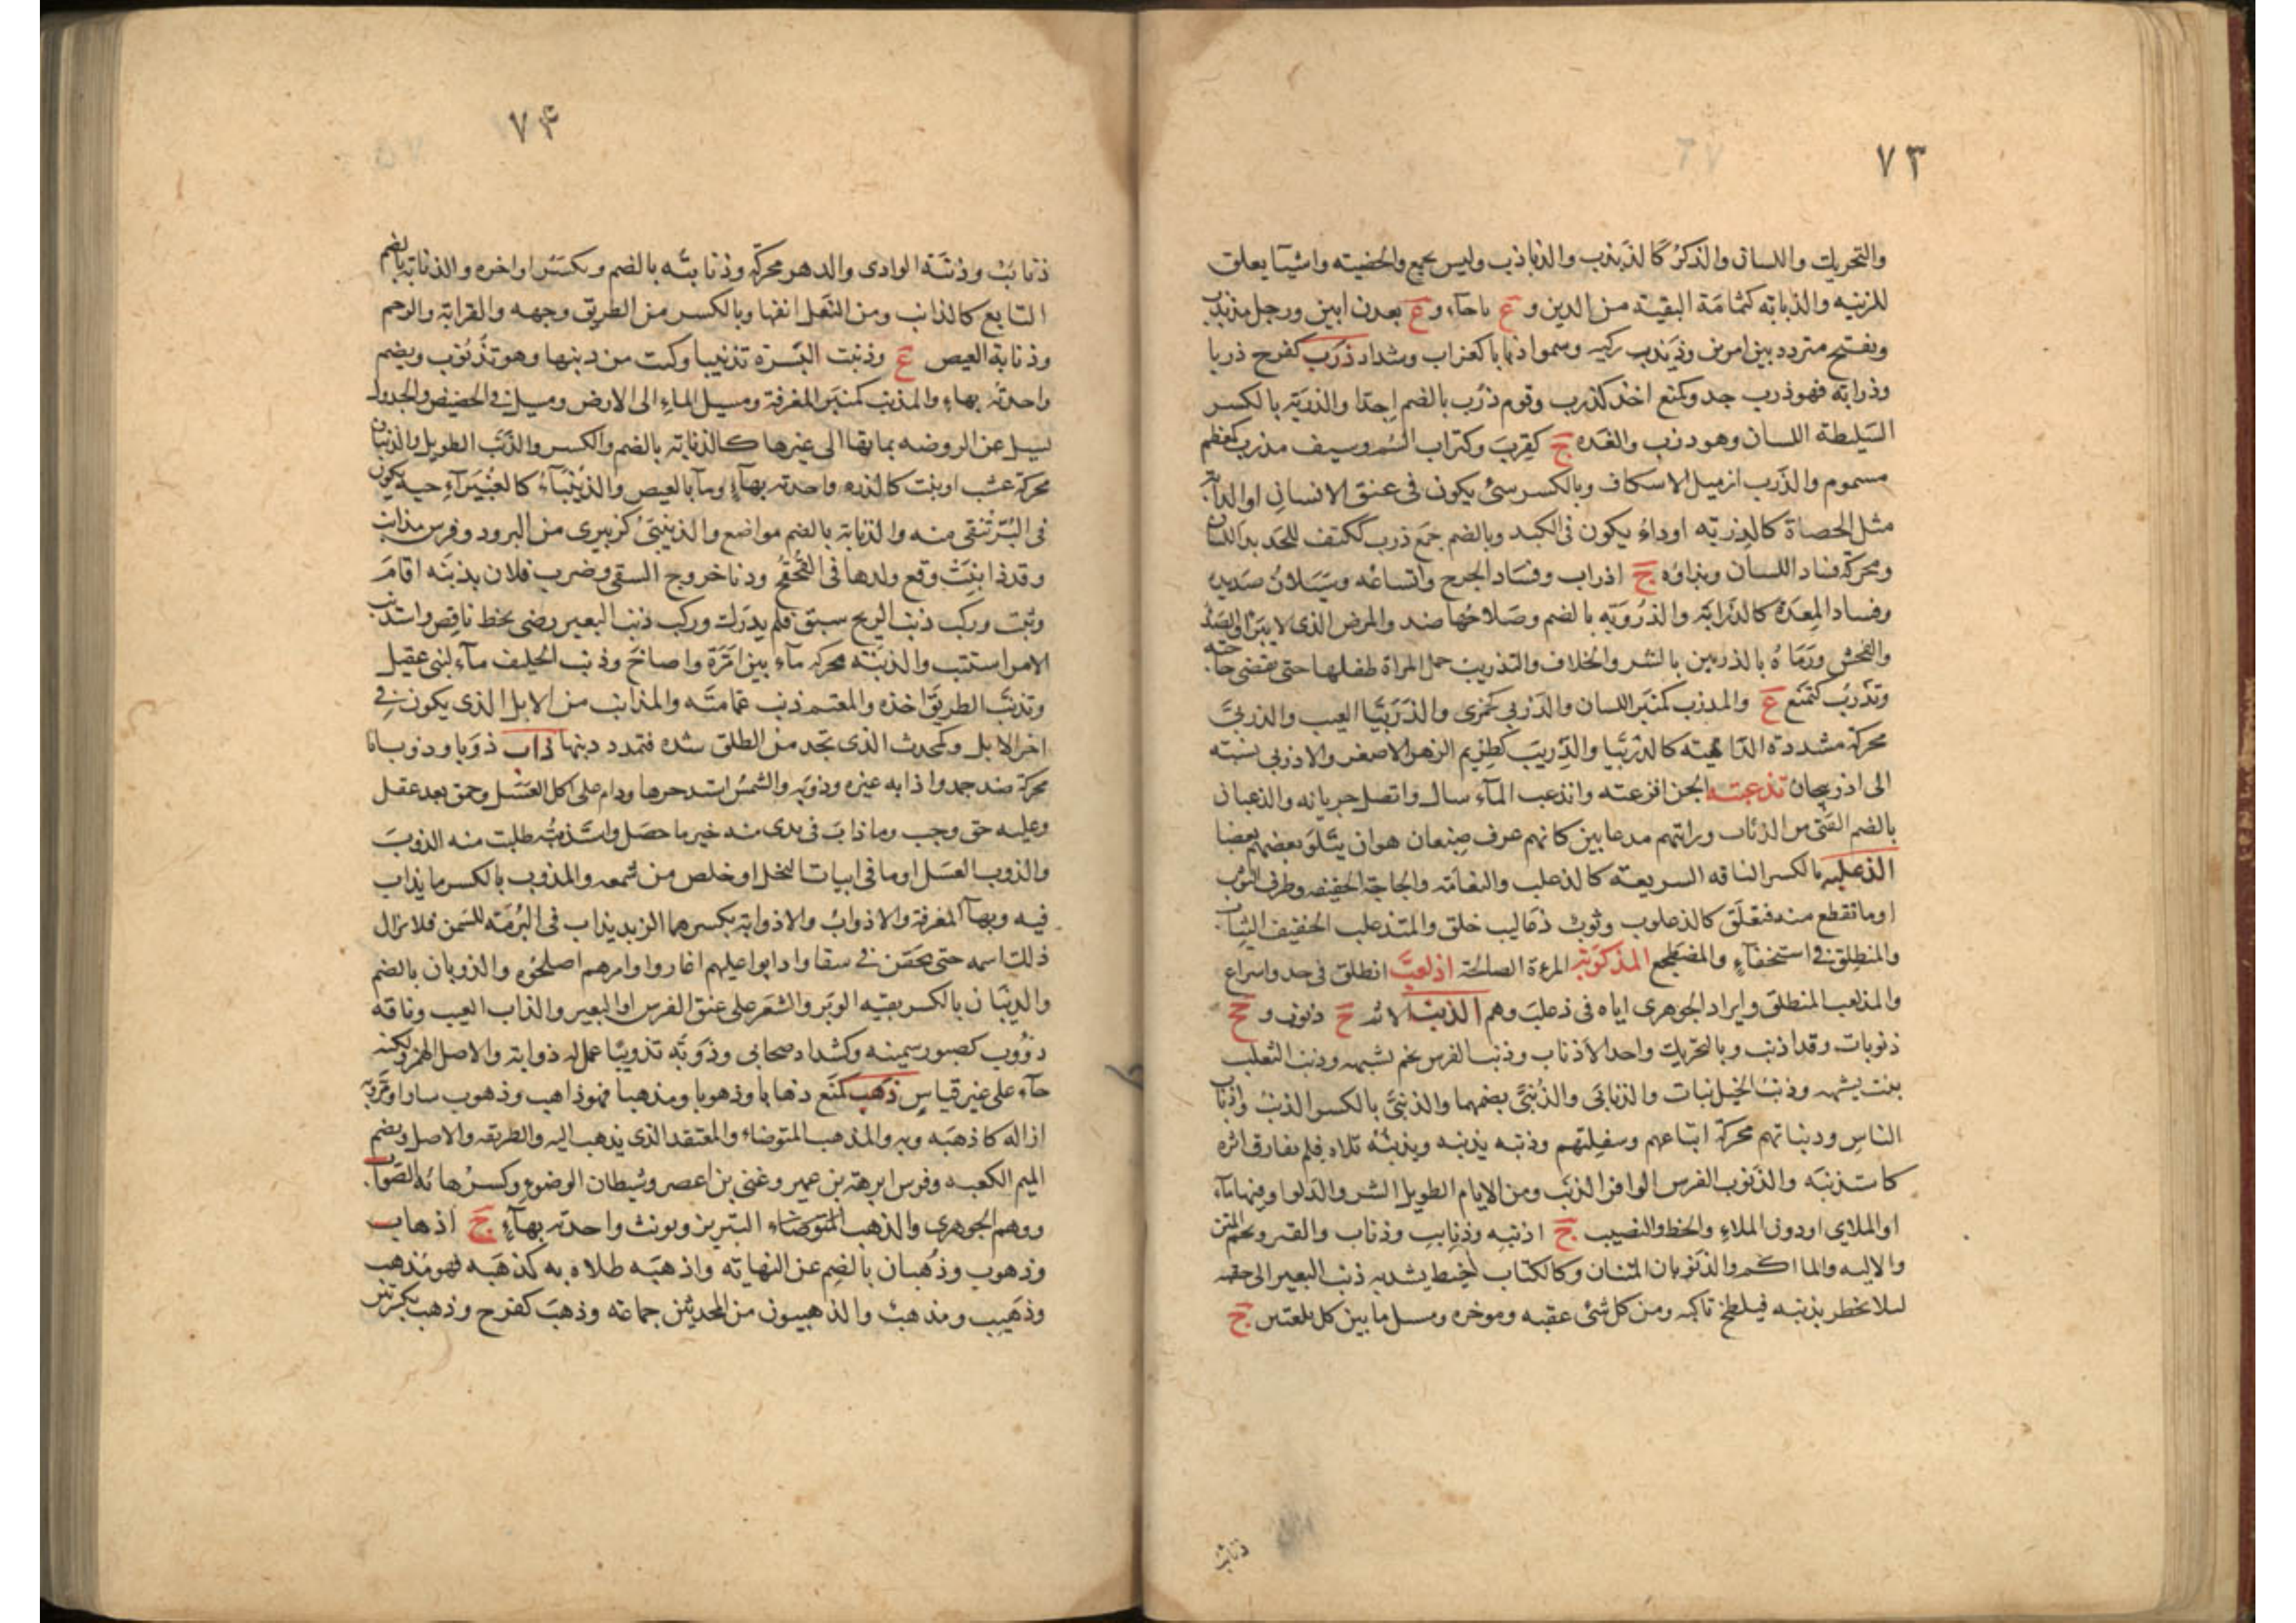 ٧٣
والتحريك واللسان والذكر كالذبذب والذباذب وليس بجمع والخصيته واشيآ يعلق
للزينه والذبابه كثمامة البقية من الدين و ع باجآء و ع بعدن ابين ورجل مذبذب
ويفتح متردد بين امرين وذبذب ركيه وسموا ذبابا كغراب وشداد ذرب كفرح ذربا
وذرابه فهو ذرب حد وكمنع احد كذرب وقوم ذرب بالضم احدا والذربة بالكسر
السليطة اللسان وهو ذرب والغده ج كقرب وكتراب السم وسيف مذرب كمعظم
مسموم والذرب ازميل الاسكاف وبالكسر شئ يكون فى عنق الانسان او الدآبة
مثل الحصاة كالذربه او داء يكون فى الكبد وبالضم جمع ذرب ككتف للحديد اللسان
ومحركة فساد اللسان وبذاؤه ج اذراب وفساد الجرح واتساعه وسيلان صديده
وفساد المعدة كالذرابة والذروبه بالضم وصلاحها ضد والمرض الذى لا يبرأ والصدأ
والفحش ورماه بالذربين بالشر والخلاف والتذريب حمل المراة طفلها حتى تقضى حاجته
وتذرب كتمنع ع والمذرب كمنبر اللسان والذربى كجمزى والذربيا العيب والذربى
محركة مشددة الداهيته كالذربيا والذريب كطريم الزهر الاصفر والاذربى نسبته
الى اذربيجان تذعبته الجن افزعته وانذعب المآء سال واتصل جريانه والذعبان
بالضم الفتى من الذئاب ورايتهم مذعابين كانهم عرف ضبعان هو ان يتلو بعضهم بعضا
الذعلبه بالكسر الناقه السريعته كالذعلب والنعامه والحاجة الخفيفه وطرف الثوب
او ما تقطع منه فتعلق كالذعلوب وثوب ذعاليب خلق والمتذعلب الخفيف الثياب
والمنطلق فى استخفآء والمضطجع المذكوبة المرءة الصالحة اذلعب انطلق فى جد واسراع
والمذلعب المنطلق وايراد الجوهرى اياه فى ذعلب وهم الذنب الاثم ج ذنوب و جج
ذنوبات وقد اذنب وبالتحريك واحد الاذناب وذنب الفرس نجم يشبهه وذنب الثعلب
نبت يشبهه وذنب الخيل نبات والذنابى والذنبى بضمهما والذنبى بالكسر الذنب واذناب
الناس وذنباتهم محركة اتباعهم وسفلتهم وذنبه يذنبه ويذنبه تلاه فلم يفارق اثره
كاستذنبه والذنوب الفرس الوافر الذنب ومن الايام الطويل الشر والدلو او فيها مآء
او الملاى او دون الملاء والحظ والنصيب ج اذنبه وذنايب وذناب والقبر ولحم المتن
والاليه والماكم والذنوبان المتنان وكالكتاب خيط يشد به ذنب البعير الى حقبه
ليلا يخطر بذنبه فيلطخ راكبه ومن كل شئ عقبه وموخره ومسيل ما بين كل تلعتين ج
ذنائب
٧٤
ذنائب وذنبة الوادى والدهر محركة وذنابته بالضم وبكسر اواخره والذنابة بالضم
التابع كالذانب ومن النعل انفها وبالكسر من الطريق وجهه والقرابة والرحم
وذنابة العيص ع وذنبت البسرة تذنيبا وكتت من ذنبها وهو تذنوب ويضم
واحدته بهاء والمذنب كمنبر المغرفة ومسيل الماء الى الارض ومسيل فى الحضيض والجدول
يسيل عن الروضه بمائها الى غيرها كالذنابة بالضم والكسر والذنب الطويل والذنبان
محركة عشب او نبت كالذره واحدته بهآء ومآ بالعيص والذنيبآء كالغبيرآء حبه يكون
فى البر تنقى منه والذنابة بالضم مواضع والذنيبى كزبيرى من البرود وفرس مذانب
وقد ذانبت وقع ولدها فى القحقح ودنا خروج السقى وضرب فلان بذنبه اقام
وثبت وركب ذنب الريح سبق فلم يدرك وركب ذنب البعير رضى بحظ ناقص واستذنب
الامر استتب والذنبه محركه مآء بين امرة واضاخ وذنب الحليف مآء لبنى عقيل
وتذنب الطريق اخذه والمعتم ذنب عمامته والمذانب من الابل الذى يكون فى
اخر الابل وكمحدث الذى تجد من الطلق شده فتمدد ذنبها ذاب ذوبا وذوبانا
محركة ضد جمد واذابه غيره وذوبه والشمس اشتد حرها ودام على اكل العسل وحمق بعد عقل
وعليه حق وجب وما ذاب فى يدى منه خير ما حصل واستذبته طلبت منه الذوب
والذوب العسل او ما فى ابيات النحل او خلص من شمعه والمذوب بالكسر ما يذاب
فيه وبهآ المغرفة والاذواب والاذوابة بكسرهما الزبد يذاب فى البرمة للسمن فلا يزال
ذلك اسمه حتى يحقن فى سقا واذابوا عليهم اغاروا وامرهم اصلحوه والذوبان بالضم
والذيبان بالكسر بقيه الوبر والشعر على عنق الفرس او البعير والذاب العيب وناقه
ذؤوب كصبور سمينه وكشداد صحابى وذوبه تذويبا عمل له ذوابة والاصل الهمز ولكنه
جآء على غير قياس ذهب كمنع ذهابا وذهوبا ومذهبا فهو ذاهب وذهوب سار او مر وبه
ازاله كاذهبه وبه والمذهب المتوضاء والمعتقد الذى يذهب اليه والطريقه والاصل وبضم
الميم الكعبه وفرس ابرهة بن عمير وغنى بن اعصر وشيطان الوضوء وكسر هائه الصواب
ووهم الجوهرى والذهب المتوضاء التبر يز ويونث واحدته بهآء ج اذهاب
وذهوب وذهبان بالضم عن النهاية واذهبه طلاه به كذهبه فهو مذهب
وذهيب ومذهب والذهبيون من المحدثين جماعه وذهب كفرح وذهب بكسرتين